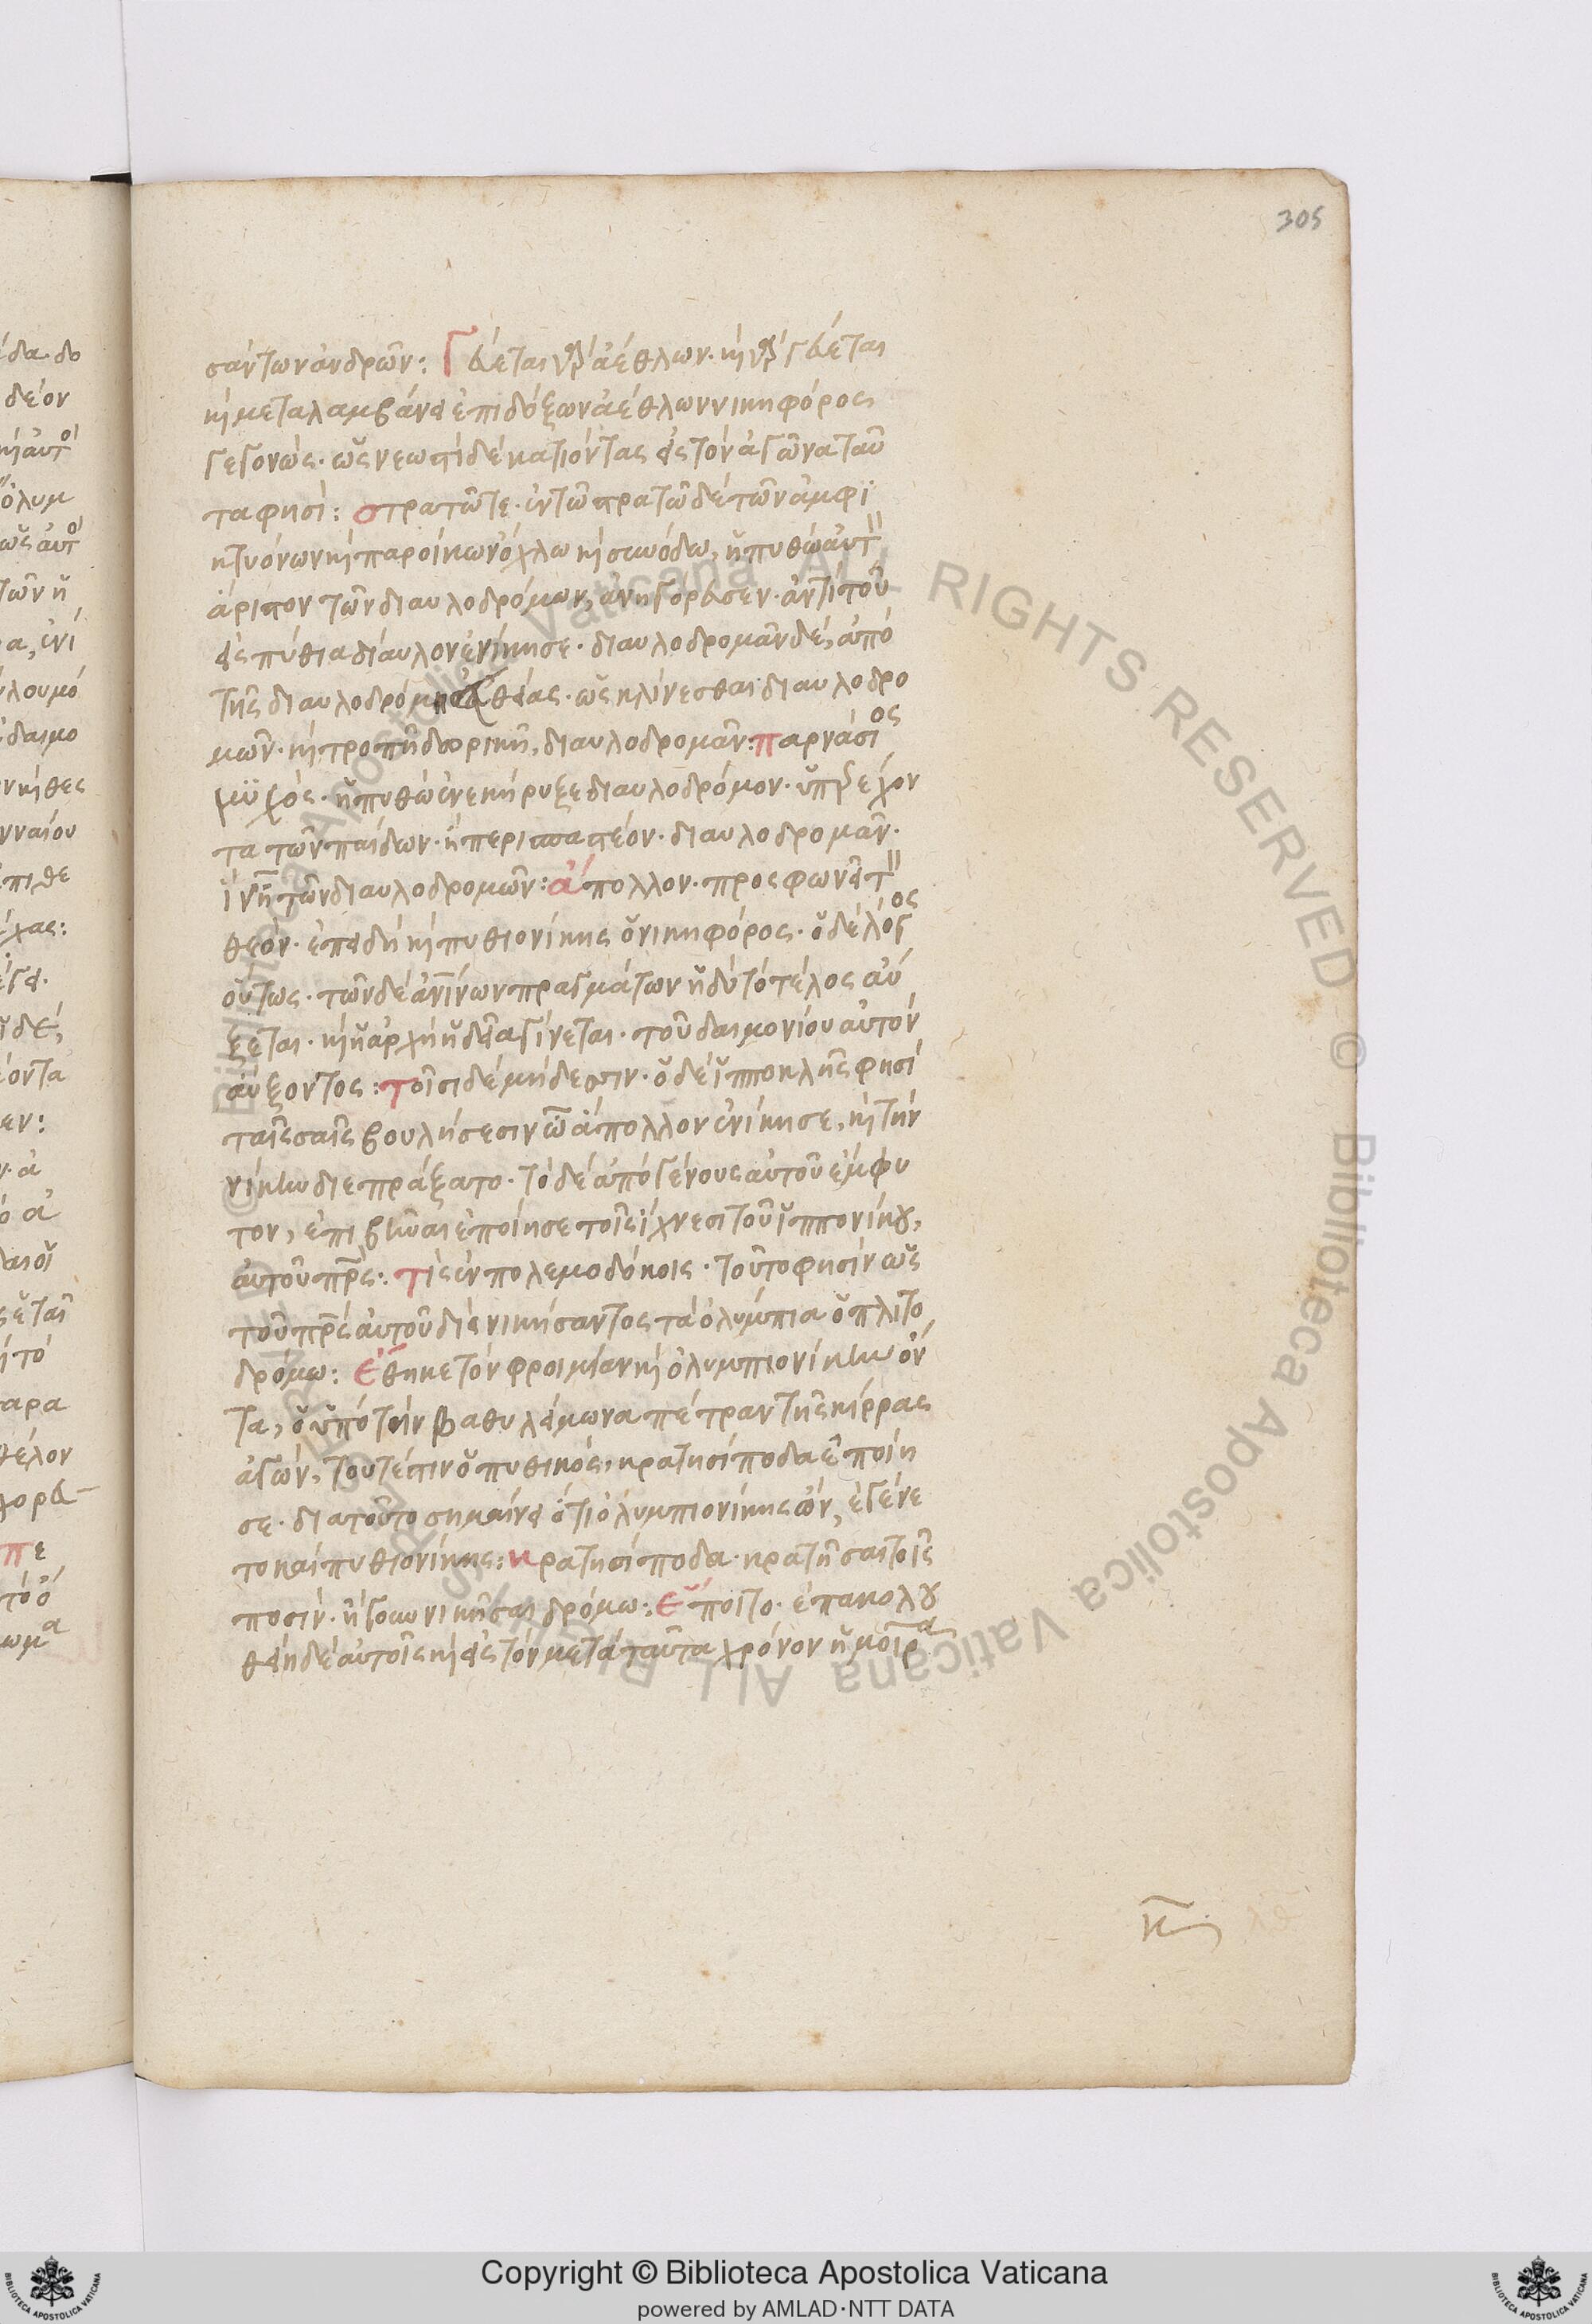 305
σάντων ἀνδρῶν: Γεύεται γὰρ ἀέθλων· καὶ γὰρ γεύεται
καὶ μεταλαμβάνει ἐπιδόξων ἀέθλων νικηφόρος
γεγονώς· ὡς νεωστὶ δὲ κατιόντας εἰς τὸν ἀγῶνα ταῦ
τα φησί: στρατῶ τε· ἐν τῶ στρατῶ δὲ τῶν ἀμφι
κτυόνων καὶ παροίκων ὄχλω καὶ συνόδω, ἡ πυθὼ αὐτὴν
ἄριστον τῶν διαυλοδρόμων, ἀνηγόρευσεν· ἀντὶ τοῦ
εἰς πύθια δίαυλον ἐνίκησε· διαυλοδρομᾶν δέ, ἀπὸ
τῆς διαυλοδρόμης εὐθείας· ὡς κλίνεσθαι διαυλοδρο
μῶν· καὶ τροπῆ δωρικῆ, διαυλοδρομᾶν: παρνάσιος
μυχός· ἡ πυθὼ ἀνεκήρυξε διαυλοδρόμον· ὑπερέχον
τα τῶν παίδων· ἢ περισπαστέον· διαυλοδρομᾶν·
ἵν' ἦ τῶν διαυλοδρομῶν: ἄπολλον· προσφωνεῖ τὸν
θεόν· ἐπειδὴ καὶ πυθιονίκης ὁ νικηφόρος· ὁ δὲ λόγος
οὕτως· τῶν δὲ ἀνίνων πραγμάτων ἡδὺ τὸ τέλος αὔ
ξεται· καὶ ἡ ἀρχὴ ἡδεῖα γίνεται· τοῦ δαιμονίου αὐτὸν
αὔξοντος: τοῖσι δὲ μήδεσιν· ὁ δὲ ἱπποκλῆς φησὶ
ταῖς σαῖς βουλήσεσιν ὦ ἄπολλον ἐνίκησε, καὶ τὴν
νίκην διεπράξατο· τὸ δὲ ἀπὸ γένους αὐτοῦ ἔμφυ
τον, ἐπιβῆναι ἐποίησε τοῖς ἴχνεσι τοῦ ἱππονίκου,
αὐτοῦ πατρός: τίς ἐν πολεμοδόκοις· τοῦτο φησὶν ὡς
τοῦ πατρὸς αὐτοῦ δὶς νικήσαντος τὰ ὀλύμπια ὁπλιτο
δρόμω: ἔθηκε τὸν φροιμίαν καὶ ὀλυμπιονίκην ὄν
τα, ὁ ὑπὸ τὴν βαθυλείμωνα πέτραν τῆς κίρρας
ἀγών, τουτέστιν ὁ πυθικός, κρατησίποδα ἐποίη
σε· διὰ τοῦτο σημαίνει ὅτι ὀλυμπιονίκης ὤν, ἐγένε
το καὶ πυθιονίκης: κρατησίποδα· κρατῆσαι τοῖς
ποσίν· ἤγουν νικῆσαι δρόμω: ἕποιτο· ἐπακολου
θείη δὲ αὐτοῖς καὶ εἰς τὸν μετὰ ταῦτα χρόνον ἡ μοῖρα